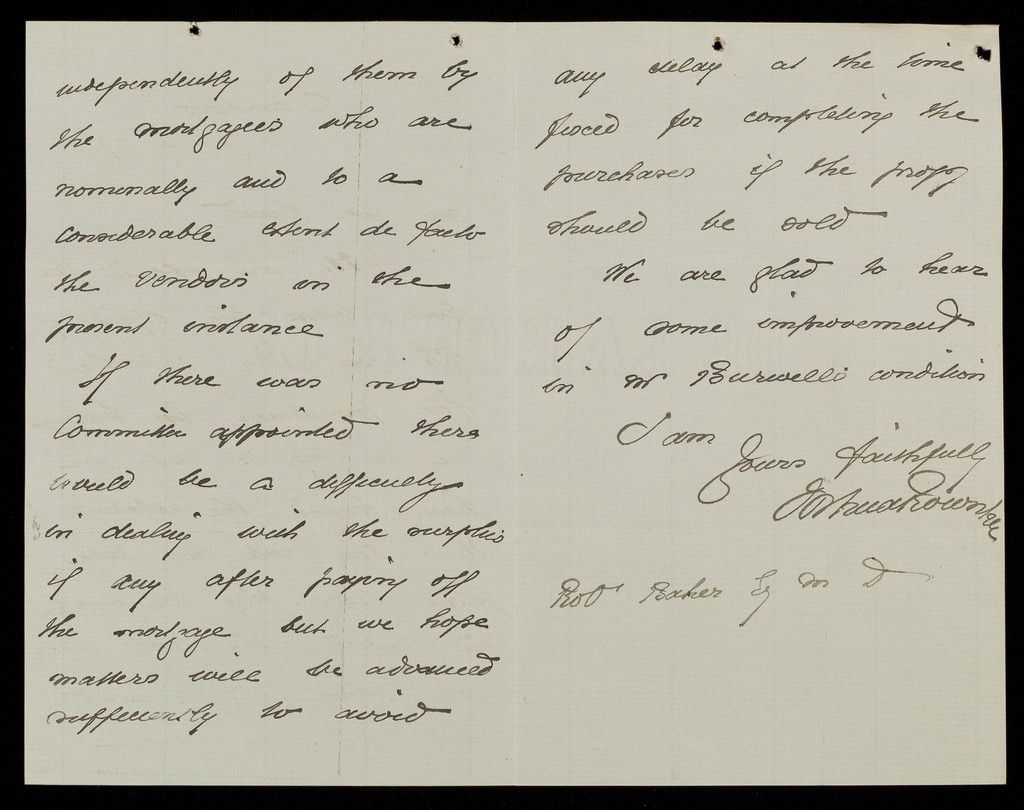 independently of them by
the mortgagees who are
nominally and to a
considerable extent de facto
the vendors in the
present instance
If there was no
Committee appointed there
would be a difficulty
in dealing with the surplus
if any after paying off
the mortgage but we hope
matters will be advanced
sufficiently to avoid
any delay at the time
fixed for completing the
purchases if the propy
should be sold
We are glad to hear
of some improvement
in Mr Burwell's condition
I am
Yours faithfully
Robt Baker Esq M D